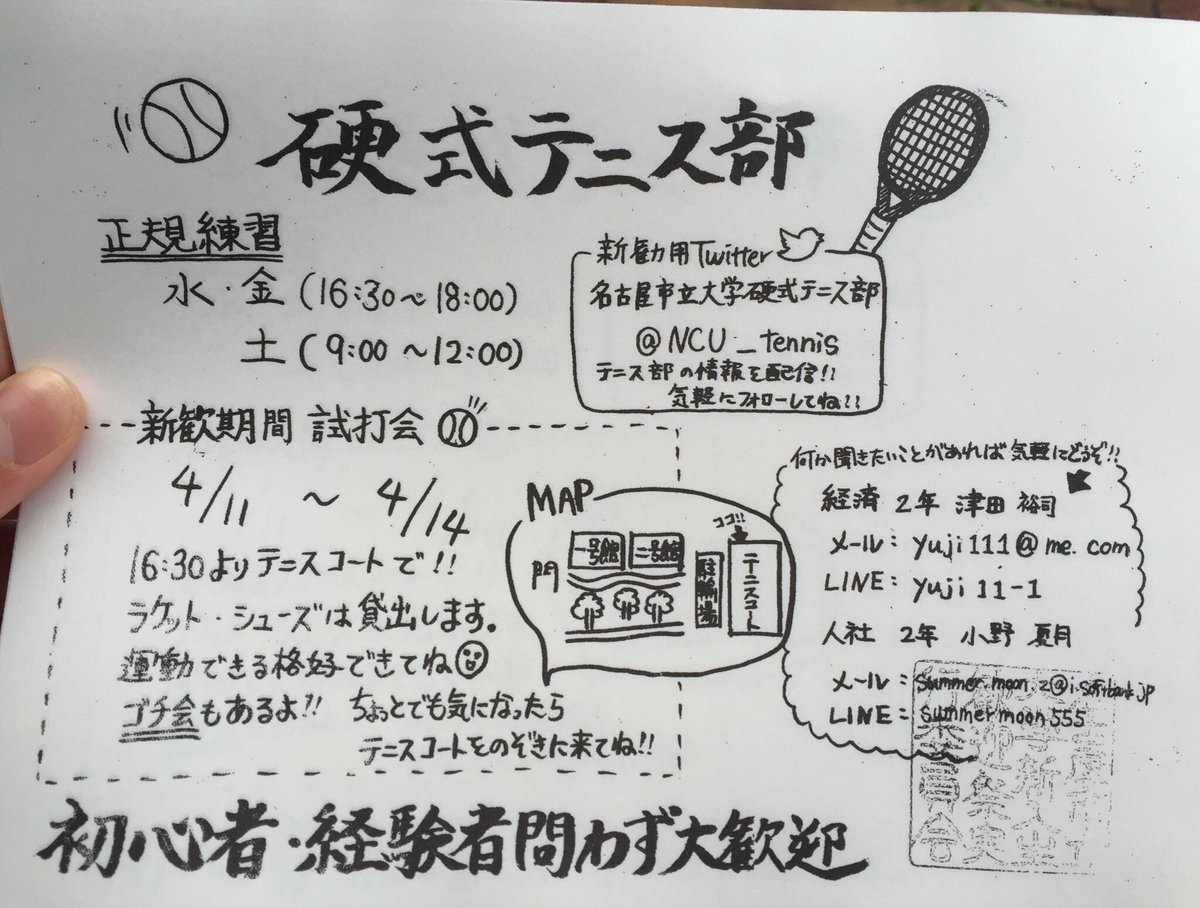 硬式テニス部
正規練習
水・金 (16:30～18:00)
土 (9:00～12:00)
新勧用Twitter
名古屋市立大学硬式テニス部
@NCU_tennis
テニス部の情報を配信!!
気軽にフォローしてね!!
新歓期間 試打会
4/11 ～ 4/14
16:30よりテニスコートで!!
ラケット・シューズは貸出します。
運動できる格好できてね
ゴチ会もあるよ!! ちょっとでも気になったら
テニスコートをのぞきに来てね!!
MAP
門
一号館
二号館
駐輪場
ココ!!
テニスコート
何か聞きたいことがあれば気軽にどうぞ!!
経済 2年 津田 裕司
メール: yuji111@me.com
LINE: yuji11-1
人社 2年 小野 夏月
メール: summer.moon.z@i.softbank.jp
LINE: summermoon555
初心者・経験者問わず大歓迎